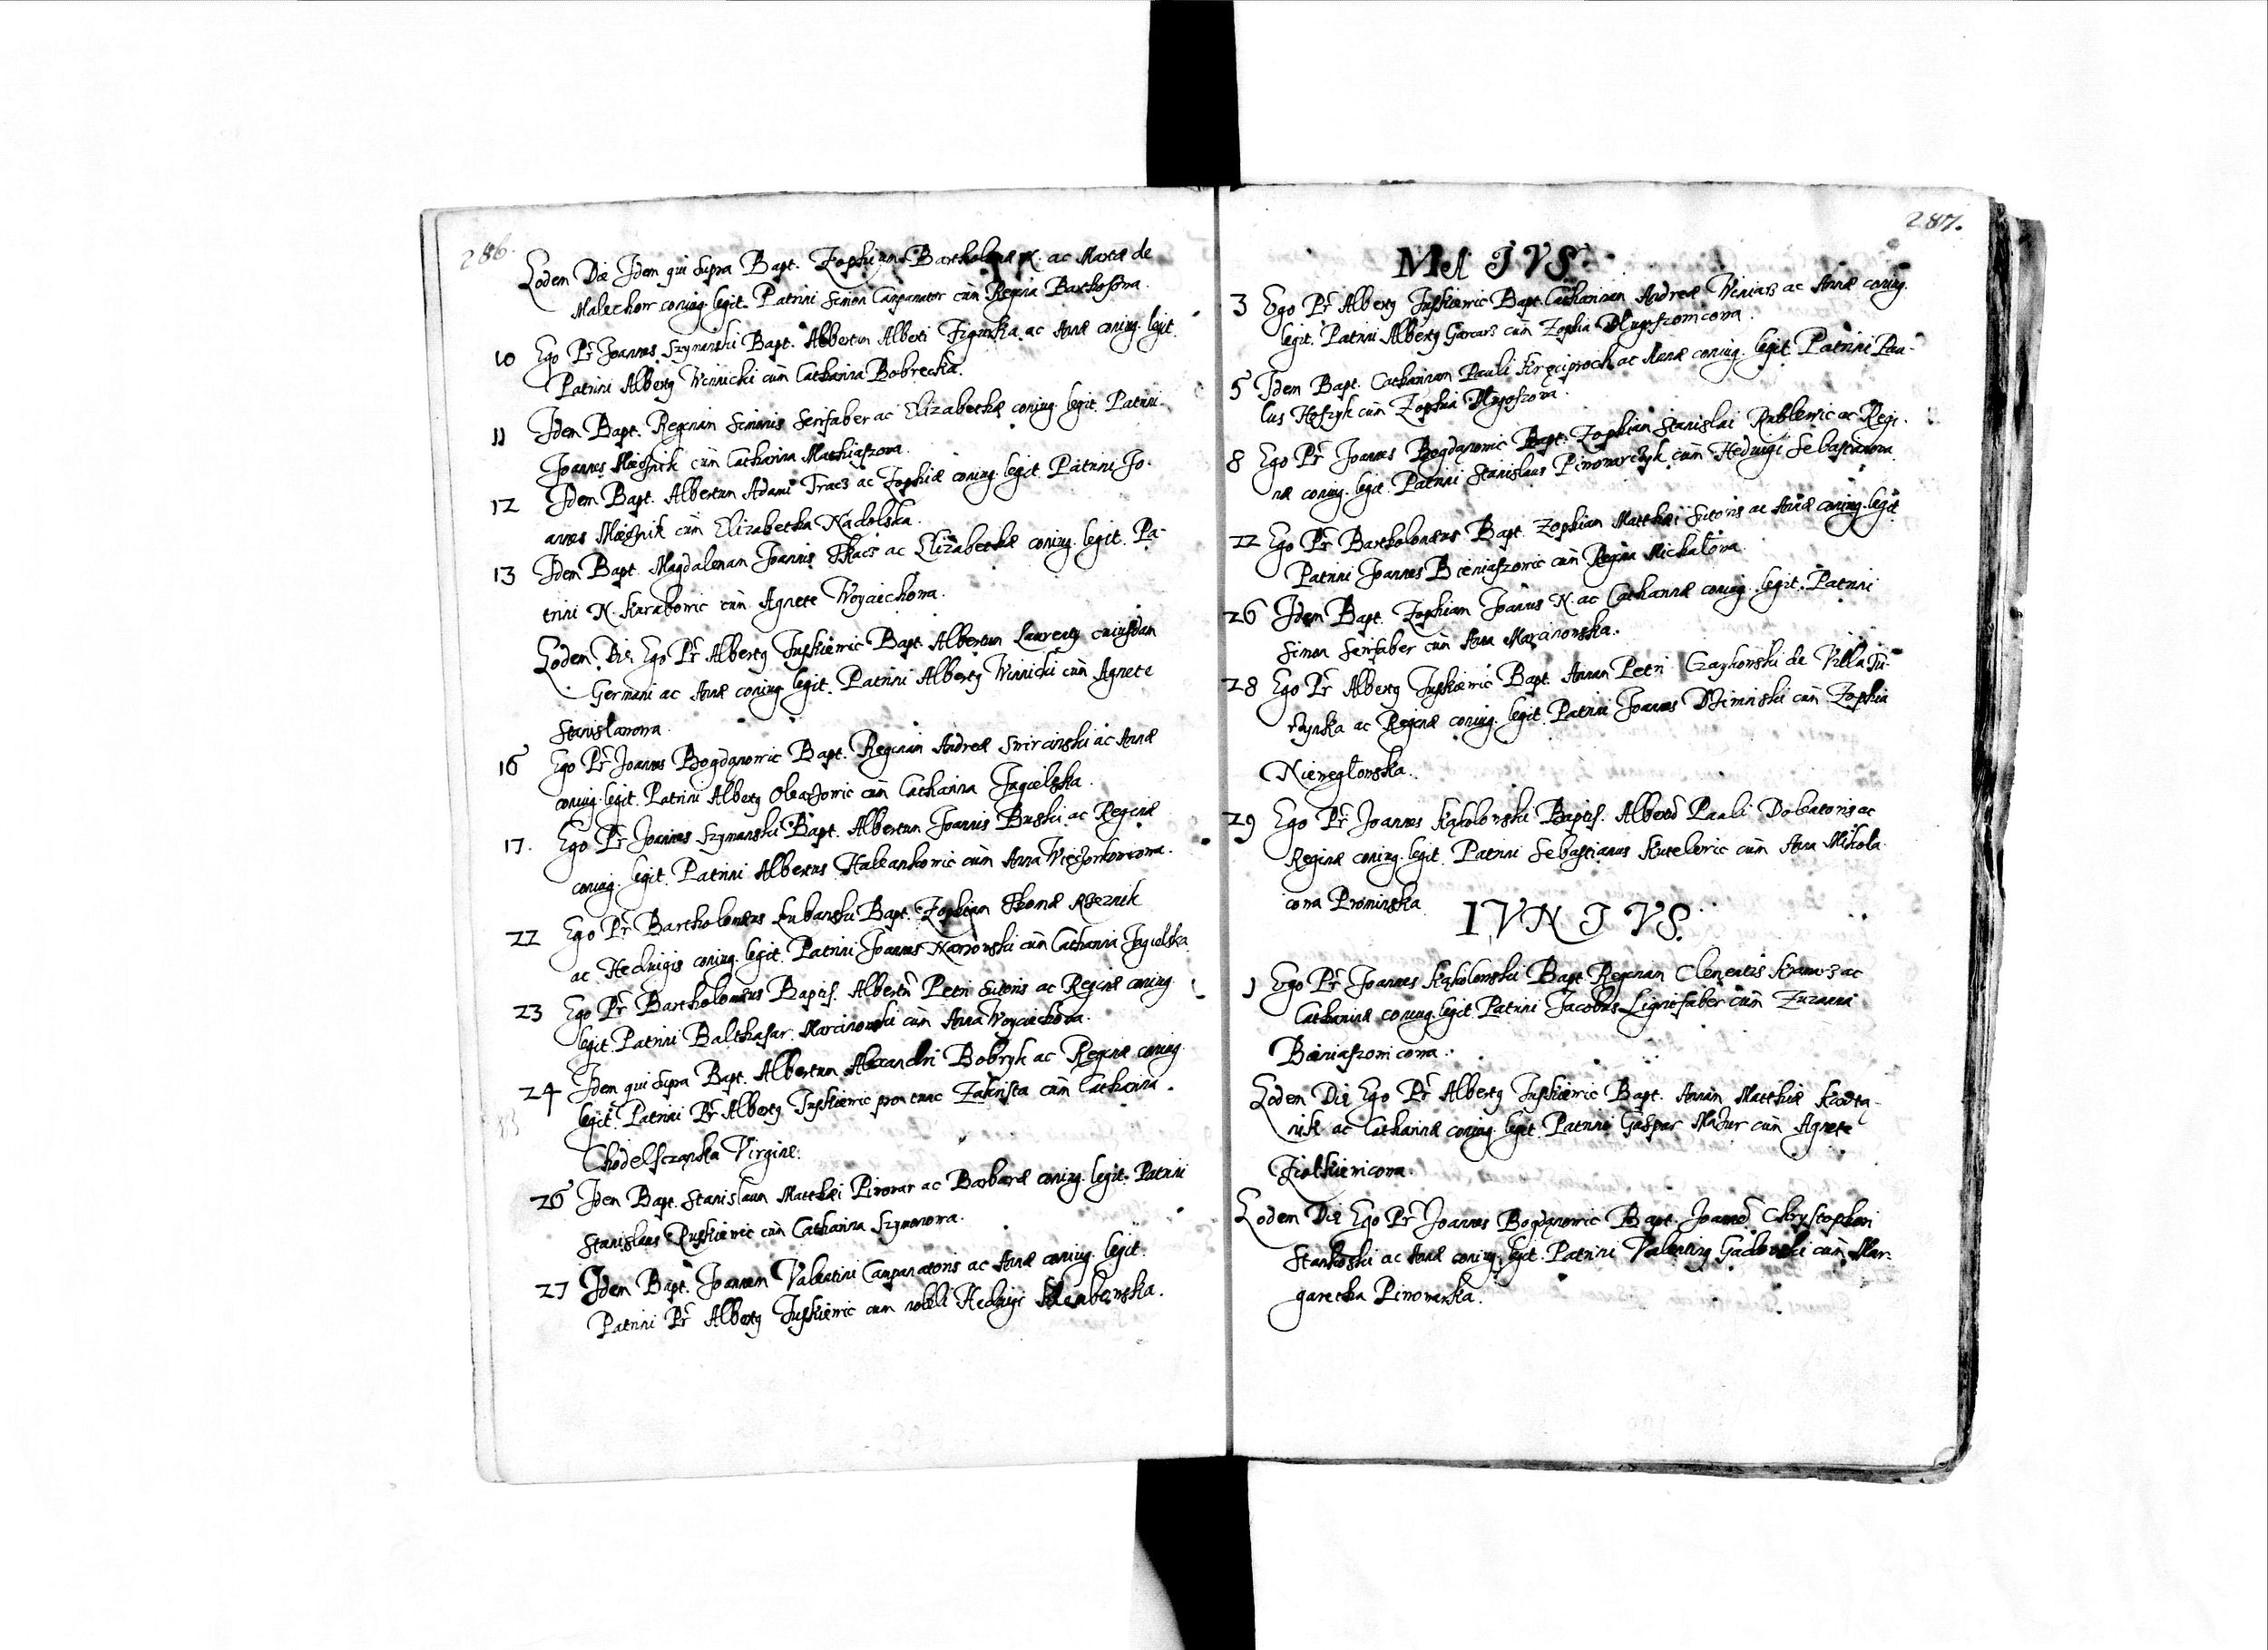 286.
Eodem Die Idem qui supra Bapt. Zophiam Bartholomæ N. ac Martæ de
Malechor coniug. legit. Patrini Simon Campanator cum Regina Barthosova.
10 Ego Pr Joannes Szymanski Bapt. Albertum Alberti Figurka ac Annæ coniug. legit.
Patrini Alberty Winnicki cum Catharina Bobrecka.
11 Idem Bapt. Reginam Simonis Serifaber ac Elizabethæ coniug. legit. Patrini
Joannes cum Catharina Mathiaszowa.
12 Idem Bapt. Albertum Adami Tracz ac Zophiæ coniug. legit. Patrini Jo-
annes cum Elizabetha Nadolska.
13 Idem Bapt. Magdalenam Joannis Tkacz ac Elizabethæ coniug. legit. Pa-
trini N. Karabowic cum Agnete Woyciechowa.
Eodem Die Ego Pr Alberty Juskiewic Bapt. Albertum Laurenty cuiusdam
Germani ac Annæ coniug. legit. Patrini Alberty Winnicki cum Agnete
Stanisławowa.
16 Ego Pr Joannes Bogdanowic Bapt. Reginam Andreæ Swircinski ac Annæ
coniug. legit. Patrini Alberty Oleaszowic cum Catharina Jagielska.
17. Ego Pr Joannes Szymanski Bapt. Albertum Joannis Buski ac Reginæ
coniug. legit. Patrini Albertus Haleankowic cum Anna
22 Ego Pr Bartholomæus Lubanski Bapt. Zophiam Thomæ Rzeznik
ac Hedvigis coniug. legit. Patrini Joannes cum Catharina Jagielska
23 Ego Pr Bartholomæus Baptis. Albertu Petri Sutoris ac Reginæ coniug.
legit. Patrini Balthasar Marcinowski cum Anna Woyciechowa.
24 Idem qui supra Bapt. Albertum Alexandri Bobryk ac Reginæ coniug.
legit. Patrini Pr Alberty Juskiewic pro tunc Zakrista cum Catharina
Chodelszczanska Virgine.
26 Idem Bapt. Stanislaum Matthæi Piwowar ac Barbaræ coniug. legit. Patrini
Stanislaus Ruskiewic cum Catharina Szymonowa.
27 Idem Bapt. Joannem Valentini Campanatoris ac Annæ coniug. legit.
Patrini Pr Alberty Juskiewic cum nobili Hedvigi
287.
MAIVS.
3 Ego Pr Alberty Juskiewic Bapt. Catharinam Andreæ Winiarz ac Annæ coniug.
legit. Patrini Alberty Garcarz cum Zophia Długoszowicowa.
5 Idem Bapt. Catharinam Pauli Kręciproch ac Annæ coniug. legit. Patrini Pau-
lus Koszyk cum Zophia Długoszowa.
8 Ego Pr Joannes Bogdanowic Bapt. Zophiam Stanislai Rublewic ac Regi-
næ coniug. legit. Patrini Stanislaus Piwowarczyk cum Hedvigi Sebastianowa
22 Ego Pr Bartholomæus Bapt. Zophiam Matthæi Sutoris ac Annæ coniug. legit.
Patrini Joannes Bieniaszowic cum Regina Michałowa.
26 Idem Bapt. Zophiam Joannis N. ac Catharinæ coniug. legit. Patrini
Simon Serifaber cum Anna Marcinowska.
28 Ego Pr Alberty Juskiewic Bapt. Annam Petri Czaykowski de Villa Tu-
rzynska ac Reginæ coniug. legit. Patrini Joannes Dziminski cum Zophia
Niewegłowska.
29 Ego Pr Joannes Kąkolowski Baptis. Albertu Pauli Doleatoris ac
Reginæ coniug. legit. Patrini Sebastianus Kutelewic cum Anna Mikoła-
iowa Prominska
IVNIVS.
1 Ego Pr Joannes Kąkolowski Bapt. Reginam Clementis Kramarz ac
Catharinæ coniug. legit. Patrini Jacobus Lignifaber cum Zuzanna
Bieniaszowicowa.
Eodem Die Ego Pr Alberty Juskiewic Bapt. Annam Matthiæ
ac Catharinæ coniug. legit. Patrini Gaspar Mazur cum Agnete
Ziołkiewicowa.
Eodem Die Ego Pr Joannes Bogdanowic Bapt. Joanne Chrystophori
Stankoski ac Annæ coniug. legit. Patrini Valentiny Gadowski cum Mar-
garetha Piwowarska.